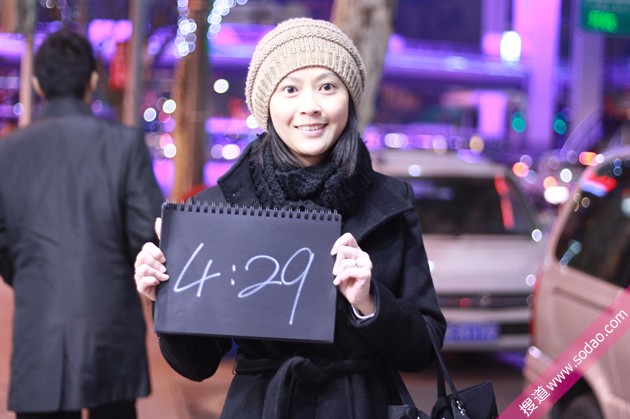 4:29
搜道 www.sodao.com